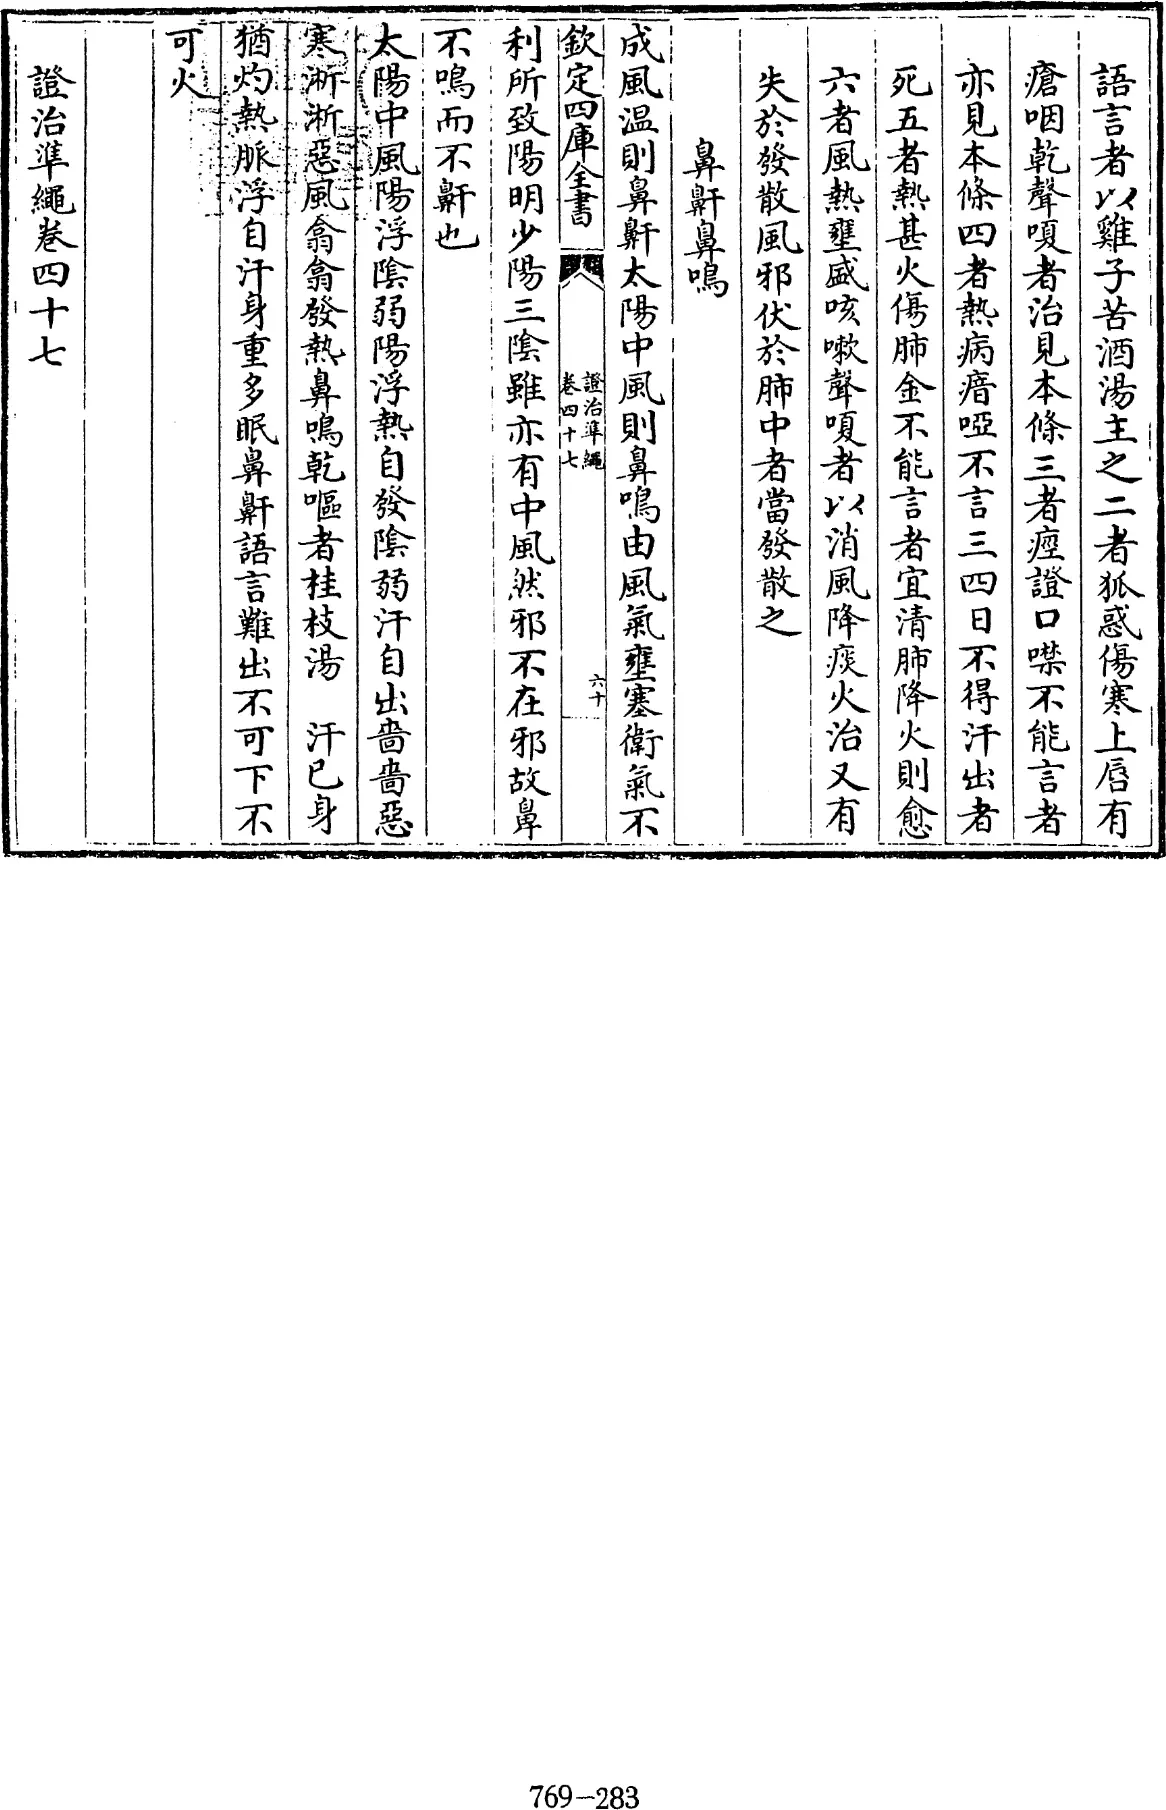 語言者以雞子苦酒湯主之二者狐惑傷寒上唇有
瘡咽乾聲嗄者治見本條三者痙證口噤不能言者
亦見本條四者熱病瘖啞不言三四日不得汗出者
死五者熱甚火傷肺金不能言者宜清肺降火則愈
六者風熱壅盛咳嗽聲嗄者以消風降痰火治又有
失於發散風邪伏於肺中者當發散之
鼻鼾鼻鳴
成風温則鼻鼾太陽中風則鼻鳴由風氣壅塞衛氣不
欽定四庫全書
證治準繩
卷四十七
六十
利所致陽明少陽三陰雖亦有中風然邪不在邪故鼻
不鳴而不鼾也
太陽中風陽浮陰弱陽浮熱自發陰弱汗自出嗇嗇惡
寒淅淅惡風翕翕發熱鼻鳴乾嘔者桂枝湯 汗已身
猶灼熱脈浮自汗身重多眠鼻鼾語言難出不可下不
可火
證治準繩卷四十七
769-283